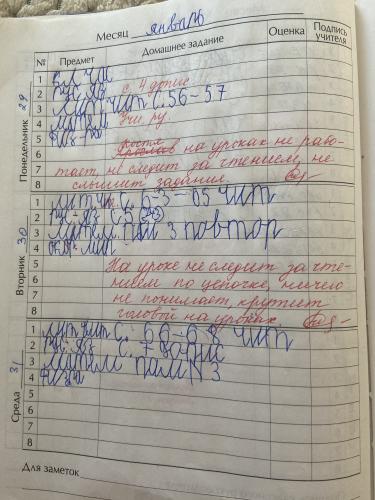 Месяц январь
№ Предмет Домашнее задание Оценка Подпись учителя
Понедельник 29
1 кл час
2 рус яз с. 4 допис.
3 лит чит с. 56-57
4 матем Уч. ру.
5 физ-ра
6 на уроках не рабо-
7 тает, не следит за чтением, не
8 слышит задания.
Вторник 30
1 лит чт с. 63-65 чит
2 рус-яз с 5
3 матем 3 повтор
4 окр. мир
5 На уроке не следит за чте-
6 нием по цепочке, ничего
7 не понимает, крутит
8 головой на уроках.
Среда 31
1 лит чит с. 66-68 чит
2 рус-яз с. 7
3 матем 3
4 физ-ра
5
6
7
8
Для заметок